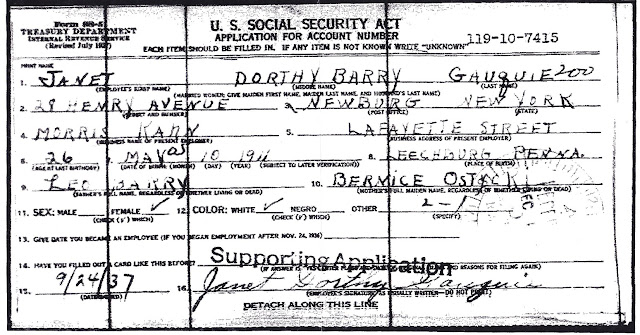 Form SS-5
TREASURY DEPARTMENT
INTERNAL REVENUE SERVICE
(Revised July 1937)
U. S. SOCIAL SECURITY ACT
APPLICATION FOR ACCOUNT NUMBER
119-10-7415
EACH ITEM SHOULD BE FILLED IN. IF ANY ITEM IS NOT KNOWN WRITE "UNKNOWN"
PRINT NAME
1. JANET DORTHY BARRY GAUQUIE 200
(EMPLOYEE'S FIRST NAME) (MIDDLE NAME) (LAST NAME)
(MARRIED WOMEN: GIVE MAIDEN FIRST NAME, MAIDEN LAST NAME, AND HUSBAND'S LAST NAME)
2. 28 HENRY AVENUE 3. NEWBURG NEW YORK
(STREET AND NUMBER) (POST OFFICE) (STATE)
4. MORRIS KAHN 5. LAFAYETTE STREET
(BUSINESS NAME OF PRESENT EMPLOYER) (BUSINESS ADDRESS OF PRESENT EMPLOYER)
6. 26 7. MAY 10 1911 8. LEECHBURG PENNA.
(AGE AT LAST BIRTHDAY) (DATE OF BIRTH: (MONTH) (DAY) (YEAR) (SUBJECT TO LATER VERIFICATION) (PLACE OF BIRTH)
9. LEO BARRY 10. BERNICE OSTICK
(FATHER'S FULL NAME, REGARDLESS OF WHETHER LIVING OR DEAD) (MOTHER'S FULL MAIDEN NAME, REGARDLESS OF WHETHER LIVING OR DEAD)
11. SEX: MALE FEMALE ✓ 12. COLOR: WHITE ✓ NEGRO OTHER 2-1
(CHECK (✓) WHICH) (CHECK (✓) WHICH) (SPECIFY)
DEC
13. GIVE DATE YOU BECAME AN EMPLOYEE (IF YOU BEGAN EMPLOYMENT AFTER NOV. 24, 1936)
14. HAVE YOU FILLED OUT A CARD LIKE THIS BEFORE?
Supporting Application
(IF ANSWER IS "YES" ENTER PLACE AND REASONS FOR FILING AGAIN)
15. 9/24/37 16. Janet Dorthy Gauquie
(DATE SIGNED) (EMPLOYEE'S SIGNATURE AS USUALLY WRITTEN—DO NOT PRINT)
DETACH ALONG THIS LINE